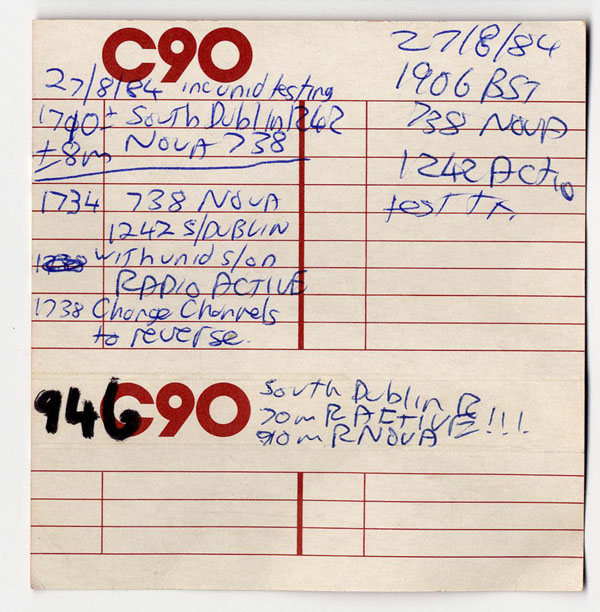 C90
27/8/84 inc unid testing
1710± South Dublin 1242
±8m NOVA 738
1734 738 NOVA
1242 S/DUBLIN
with unid s/on
RADIO ACTIVE
1738 Change Channels
to reverse.
27/8/84
1906 BST
738 NOVA
1242 Actio
test tx.
946 C90
South Dublin R
70m R ACTIVE!!!
90m R NOVA